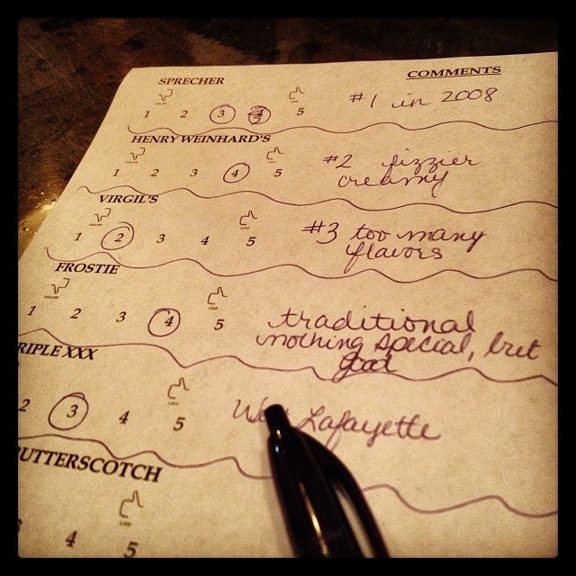 SPRECHER
COMMENTS
1 2 3 4 5
#1 in 2008
HENRY WEINHARD'S
1 2 3 4 5
#2 fizzier
creamy
VIRGIL'S
1 2 3 4 5
#3 too many
flavors
FROSTIE
1 2 3 4 5
traditional
nothing special, but
good
RIPLE XXX
2 3 4 5
West Lafayette
BUTTERSCOTCH
4 5